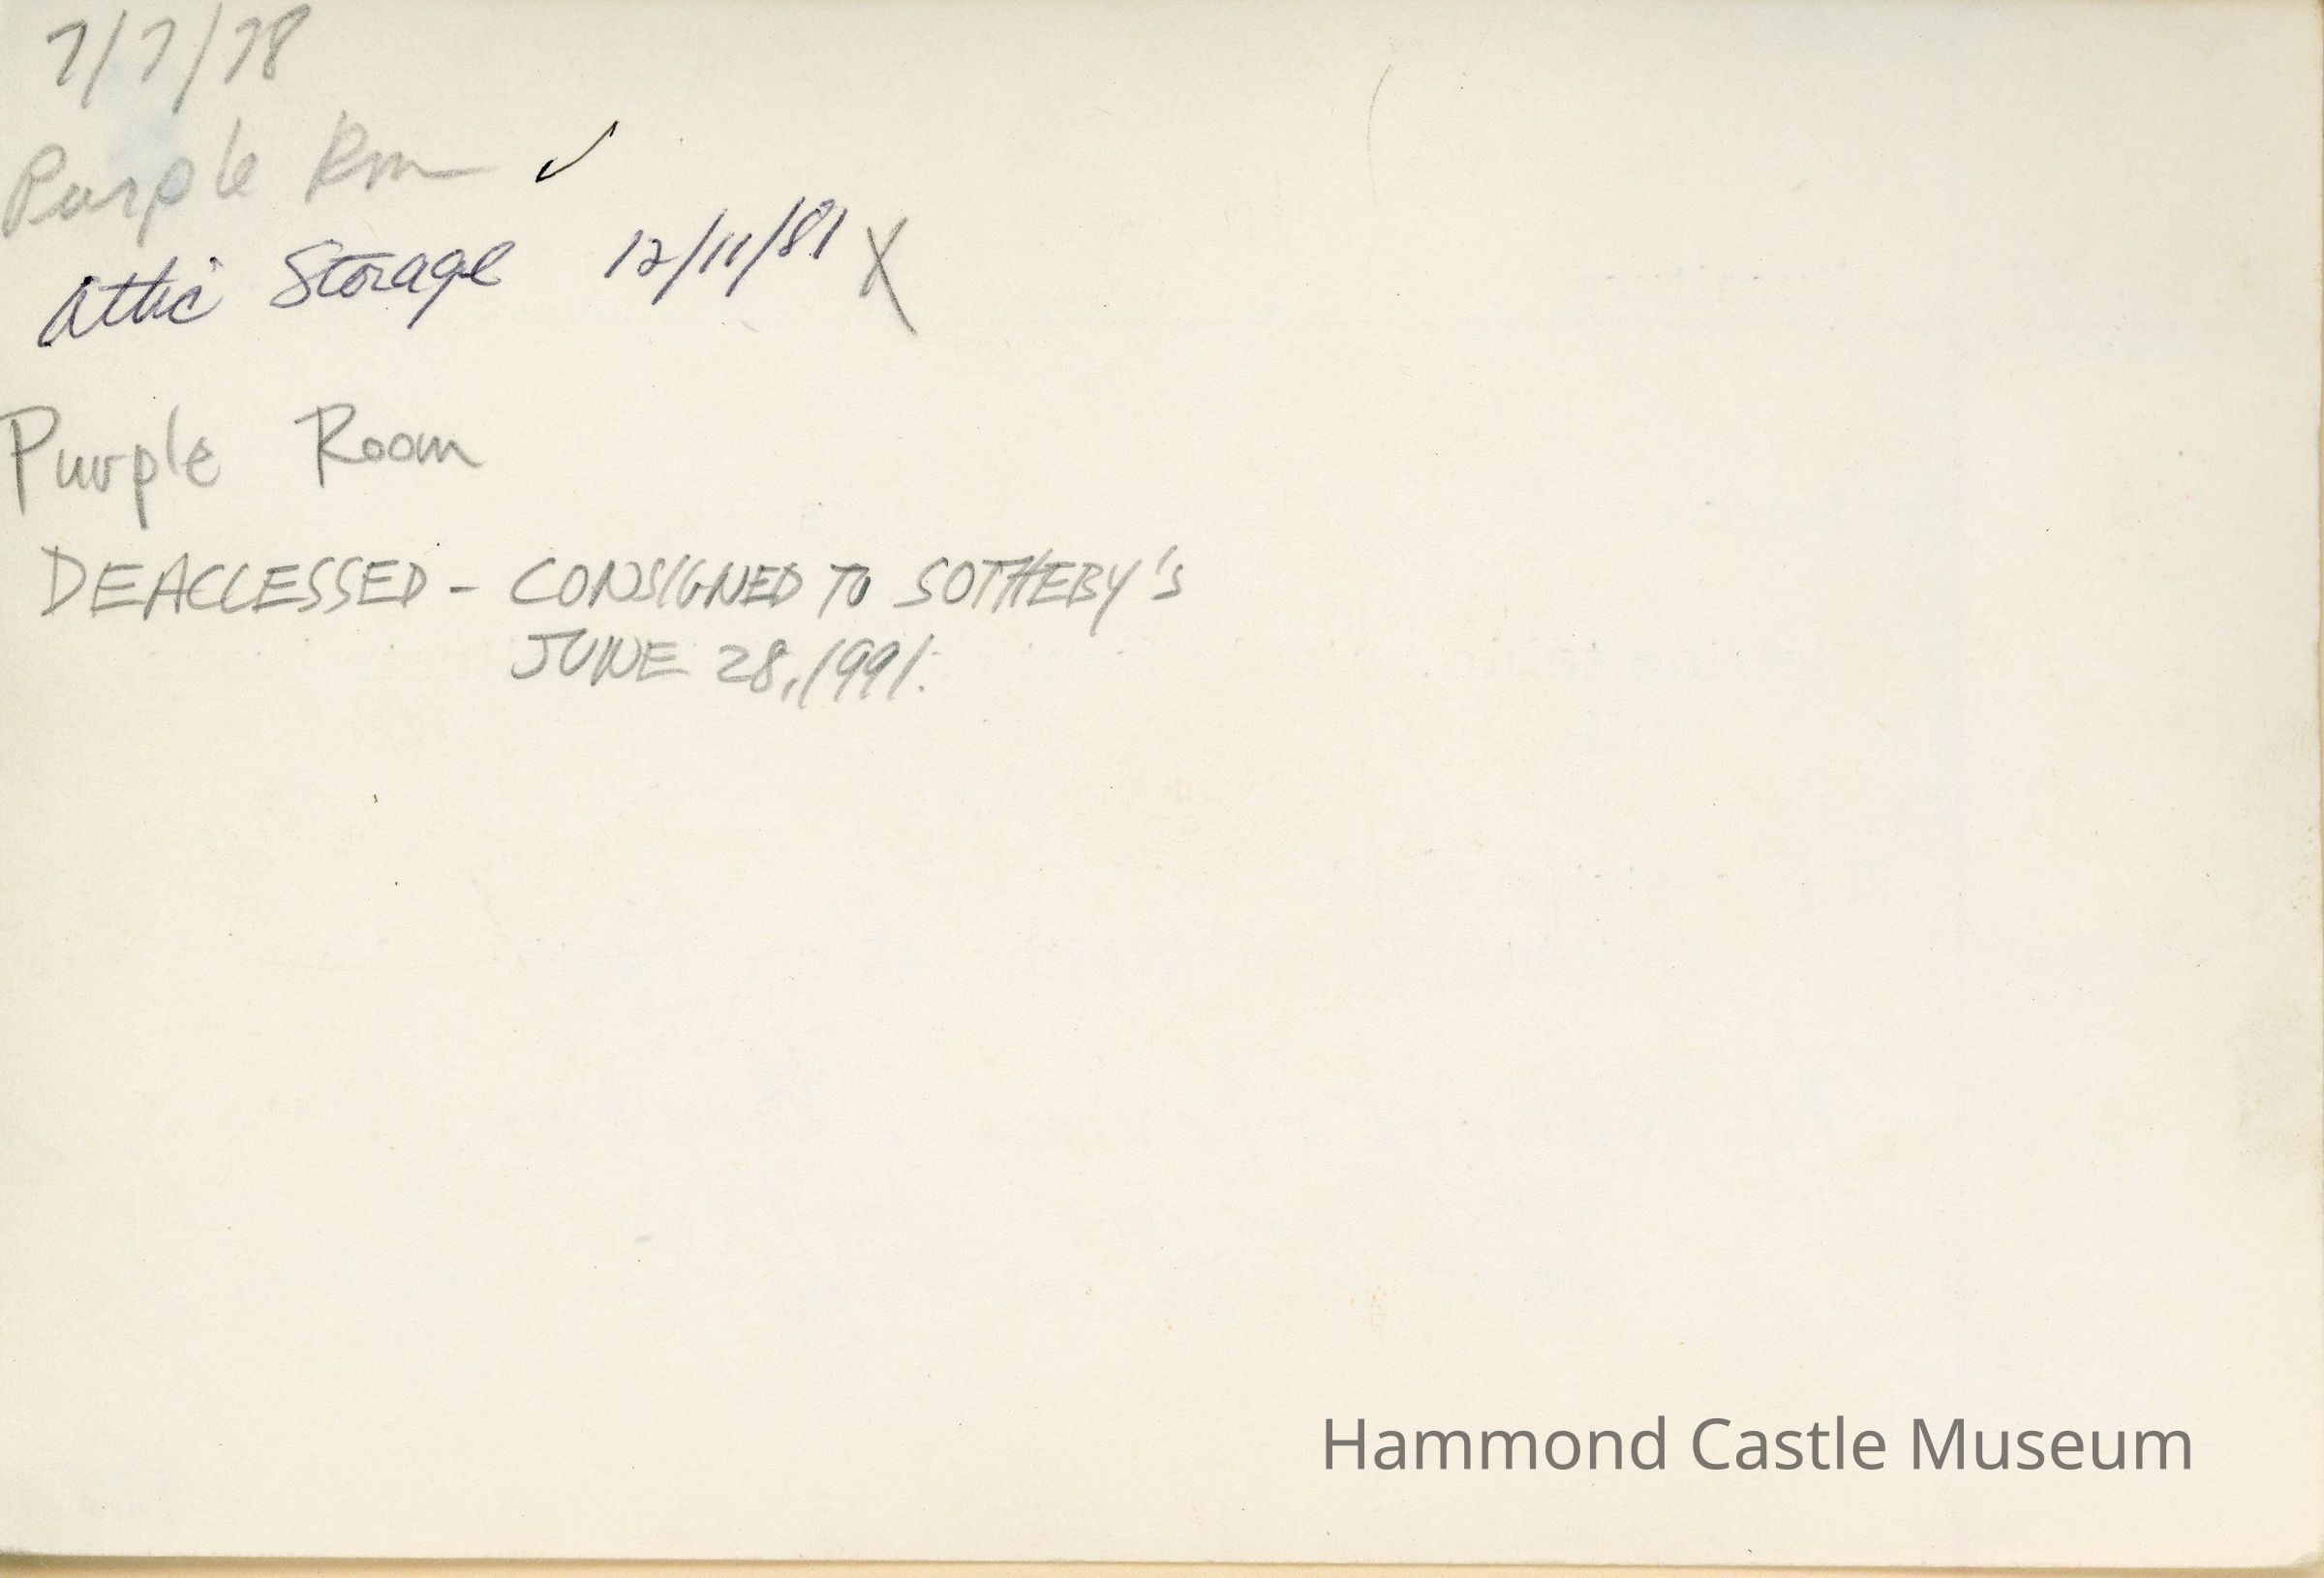 7/7/78
Purple Rm ✓
Attic Storage 12/11/81 X
Purple Room
DEACCESSED - CONSIGNED TO SOTHEBY'S
JUNE 28, 1991.
Hammond Castle Museum